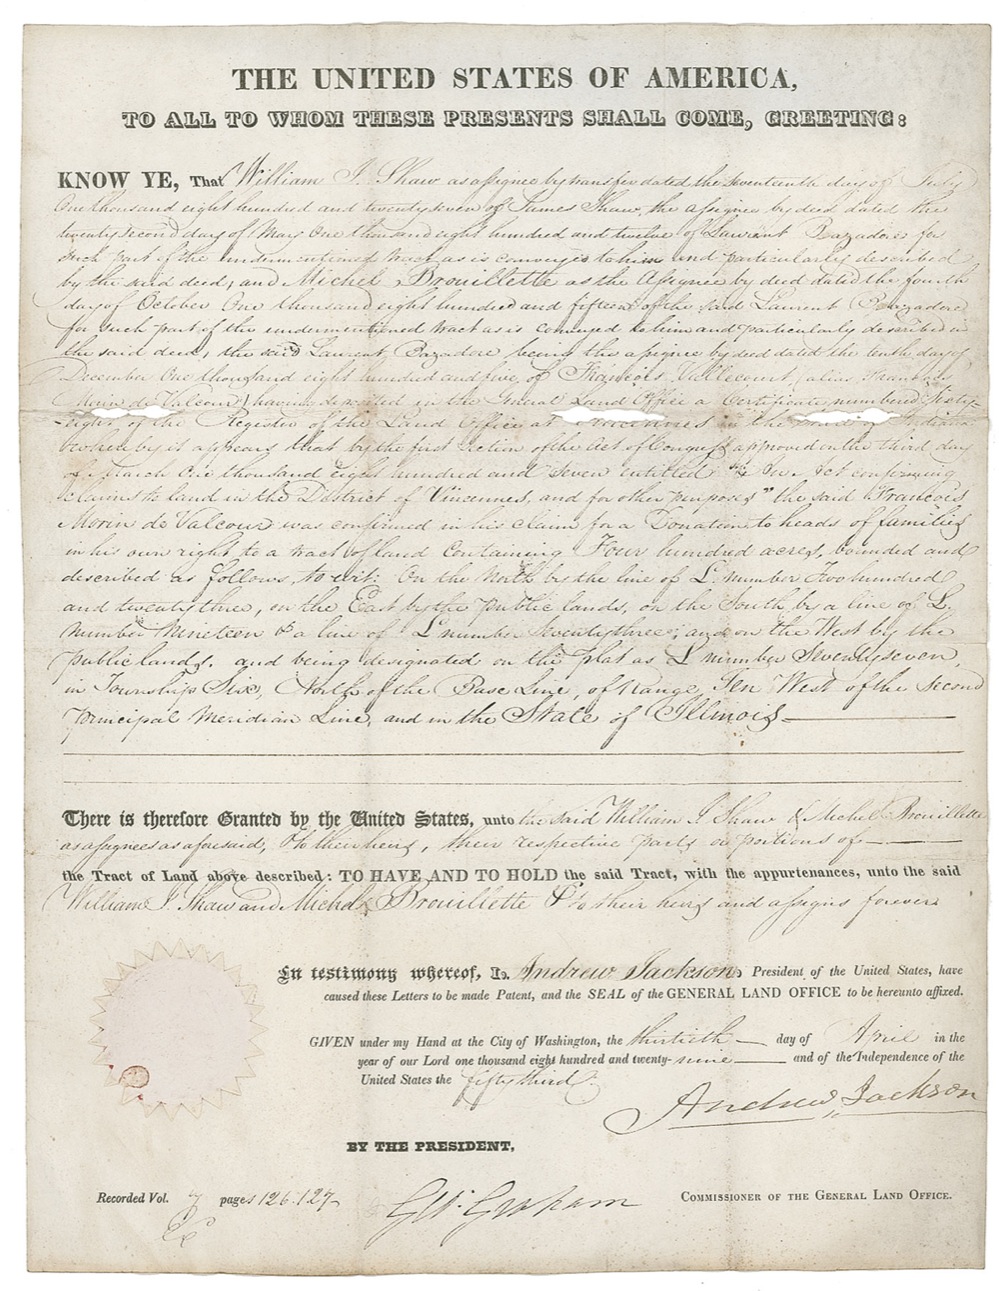 THE UNITED STATES OF AMERICA,
TO ALL TO WHOM THESE PRESENTS SHALL COME, GREETING:
KNOW YE, That William I. Shaw as assignee by transfer dated the seventeenth day of July
One thousand eight hundred and twentyseven of James Shaw, the assignee by deed dated the
twenty second day of May One thousand eight hundred and twelve of Laurent Bazadore for
such part of the undermentioned tract as is conveyed to him and particularly described
by the said deed, and Michel Brouillette as the Assignee by deed dated the fourth
day of October One thousand eight hundred and fifteen of the said Laurent Bazadore
for such part of the undermentioned tract as is conveyed to him and particularly described in
the said deed, the said Laurent Bazadore being the assignee by deed dated the tenth day of
December One thousand eight hundred and five, of Francois Vallecourt (alias Francois
Morin de Valcour) having deposited in the General Land Office a Certificate numbered Sixty-
eight of the Register of the Land Office at Vincennes in the State of Indiana
whereby it appears that by the first section of the Act of Congress approved on the third day
of March One thousand eight hundred and seven entitled "An Act confirming
claims to land in the District of Vincennes, and for other purposes" the said Francois
Morin de Valcour was confirmed in his claim for a Donation to heads of families
in his own right to a tract of land containing Four hundred acres, bounded and
described as follows, to wit: On the North by the line of L. number Two hundred
and twenty three, on the East by the public lands, on the South by a line of L.
number Nineteen & a line of L number Seventythree; and on the West by the
public lands. and being designated on the plat as L number Seventyseven,
in Township Six, North of the Base Line, of Range Ten West of the second
principal Meridian Line, and in the State of Illinois
There is therefore Granted by the United States, unto the said William I Shaw & Michel Brouillette
as assignees as aforesaid, & to their heirs, their respective parts or portions of
the Tract of Land above described: TO HAVE AND TO HOLD the said Tract, with the appurtenances, unto the said
William I. Shaw and Michel Brouillette & to their heirs and assigns forever.
In testimony whereof, I, Andrew Jackson, President of the United States, have
caused these Letters to be made Patent, and the SEAL of the GENERAL LAND OFFICE to be hereunto affixed.
GIVEN under my Hand at the City of Washington, the thirtieth day of April in the
year of our Lord one thousand eight hundred and twenty-nine and of the Independence of the
United States the fifty third.
Andrew Jackson
BY THE PRESIDENT,
Recorded Vol. 7 pages 126.127 Geo. Graham COMMISSIONER OF THE GENERAL LAND OFFICE.